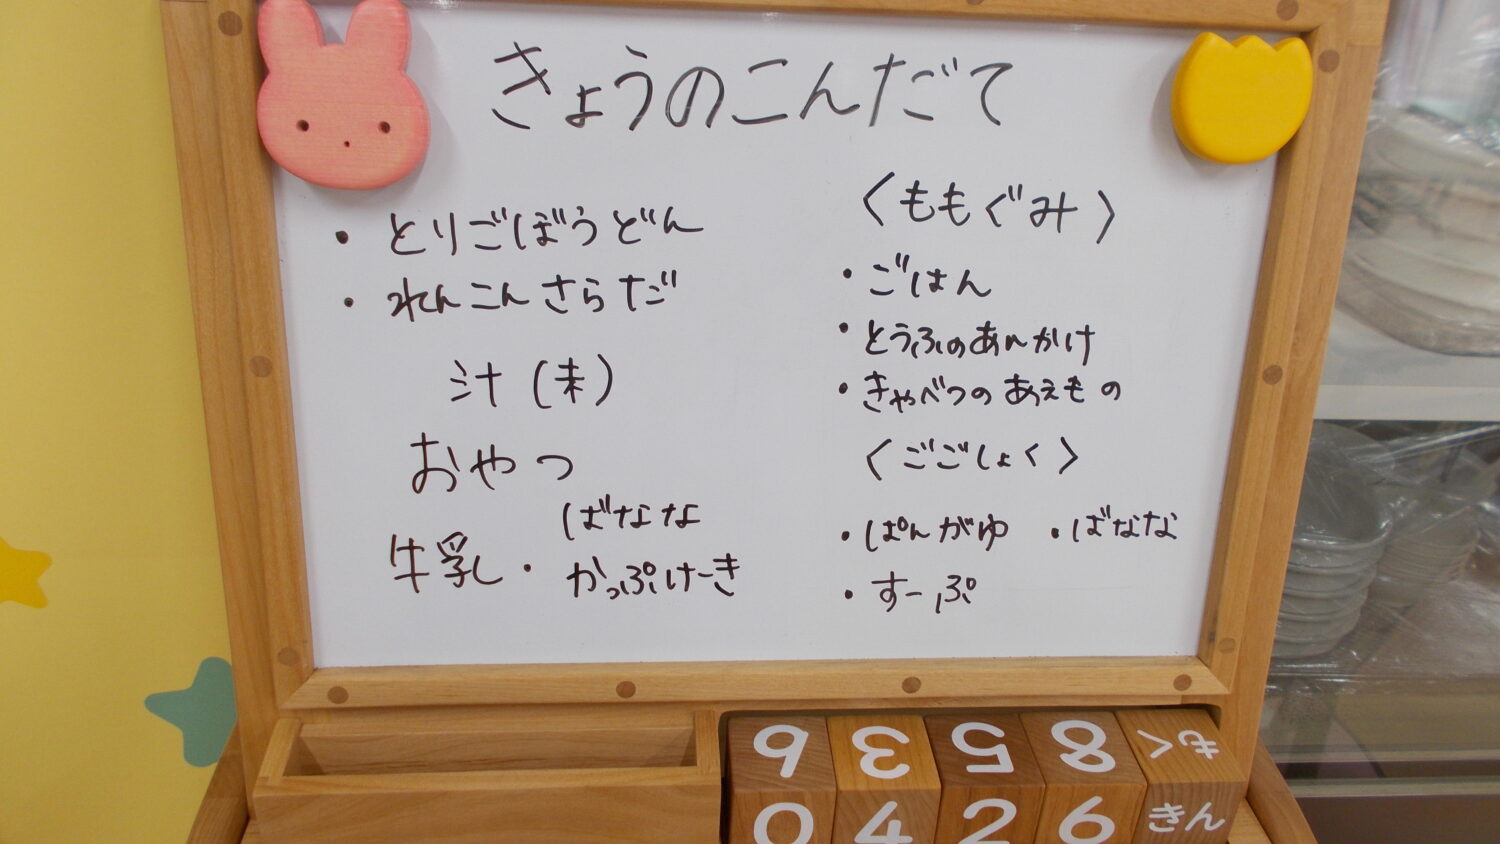 きょうのこんだて
・とりごぼうどん
・れんこんさらだ
汁(未)
おやつ
牛乳・ばなな
かっぷけーき
〈ももぐみ〉
・ごはん
・とうふのあんかけ
・きゃべつのあえもの
〈ごごしょく〉
・ぱんがゆ ・ばなな
・すーぷ
6 3 5 8 もく
0 4 2 6 きん